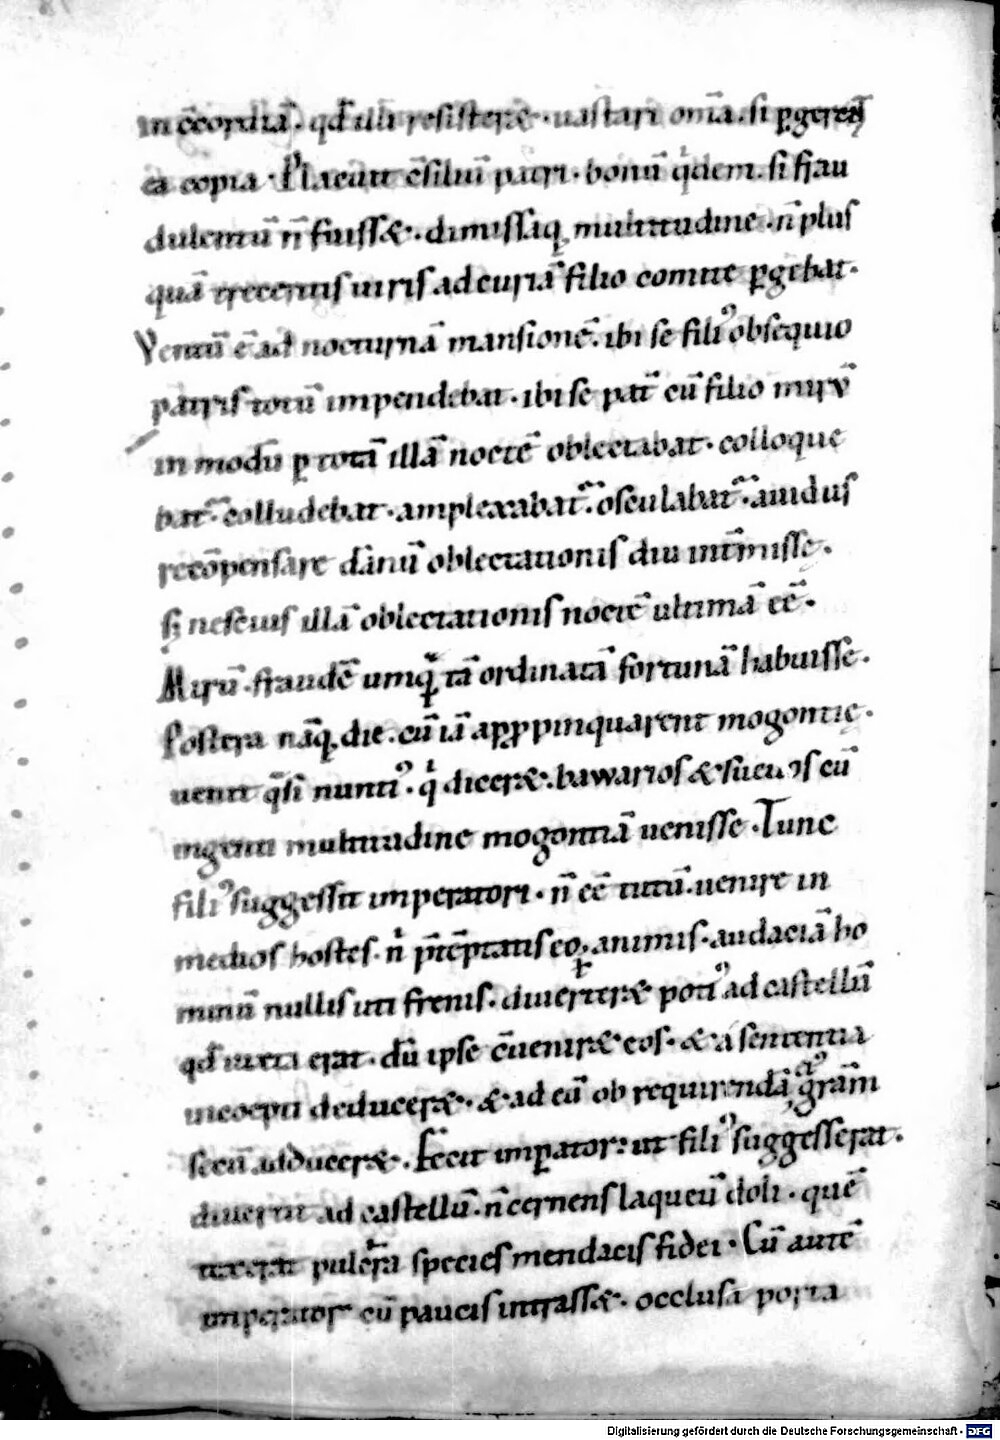 in c̄cordiā. qđ illi resisteret. uastari om̄ia. si ꝑgeret
ea copia. Placuit c̄siliū patri. bonū qͥdem. si frau
dulentū n̄ fuiss&. dimissaq; multitudine. n̄ plus
quā trecentis uiris ad curiā filio comite ꝑgebat.
Ventū ē ad nocturnā mansionē. ibi se filiꝰ obsequio
patris totū impendebat. ibi se pat̄ cū filio mirū
in modū ꝑ totā illā noctē oblectabat. colloque
bat᷑. colludebat. amplexabat᷑. osculabat᷑. auidus
recōpensare dānū oblectationis diu int̄missę.
sꝫ nescius illā oblectationis noctē ultimā eē.
Mirū. fraudē umqͣ tā ordinatā fortunā habuisse.
Postera nāq; die. cū iā apꝓpinquarent mogontię.
uenit qͣsi nuntiꝰ. qͥ dicer&. bawarios & sueuos cū
ingenti multitudine mogontiā uenisse. Tunc
filiꝰ suggessit imperatori. n̄ eē tutū. uenire in
medios hostes. n̄ p̄tēptatis eoꝝ animis. audaciā ho
minū nullis uti frenis. diuerter& potiꝰ ad castellū
qđ iuxta erat. dū ipse c̄uenir& eos. & a sententia
incoepti deducer&. & ad eū ob requirendā ei' gr̄am
secū adducer&. Fecit imꝑator: ut filiꝰ suggesserat.
diuertit ad castellū. n̄ cernens laqueū doli. quē
texerat pulcra species mendacis fidei. Cū autē
imperator cū paucis intrass&. occlusa porta
Digitalisierung gefördert durch die Deutsche Forschungsgemeinschaft - DFG